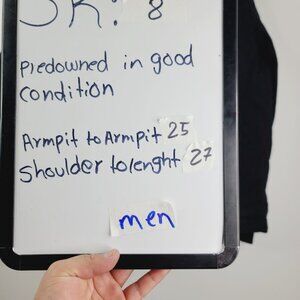 8
Predowned in good
condition
Armpit to Armpit 25
Shoulder tolenght 27
men